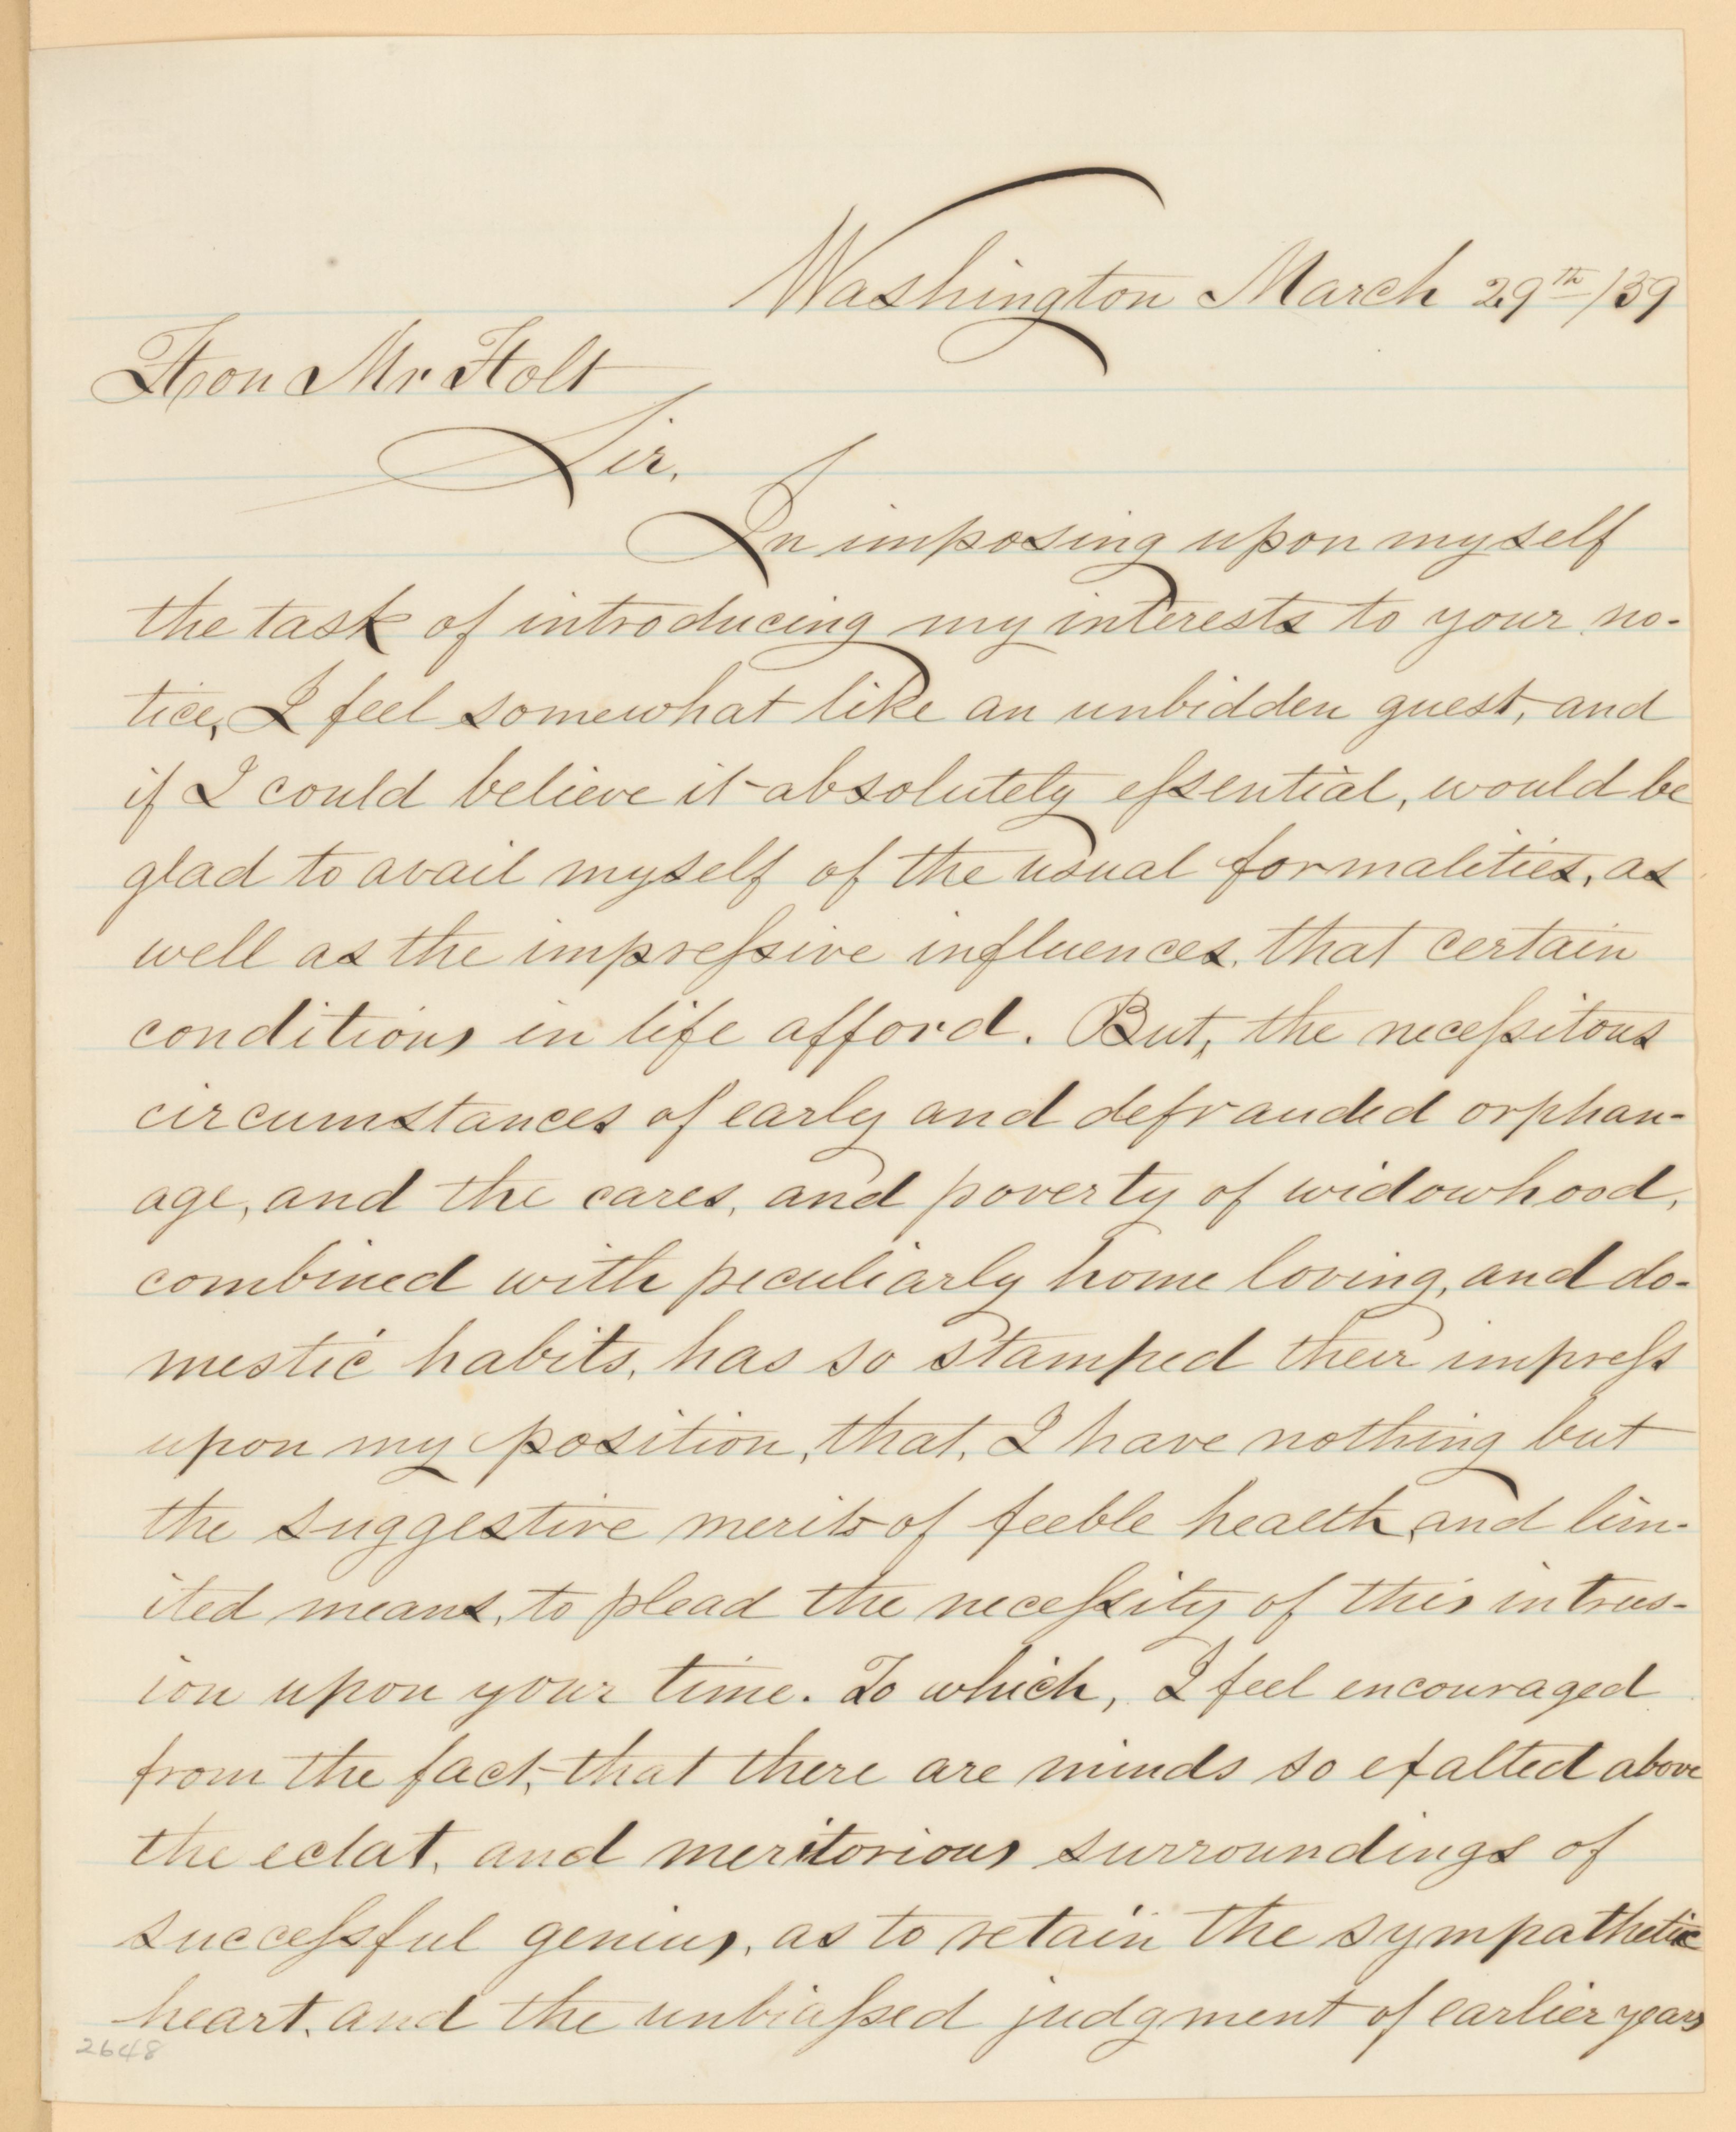 Washington March 29th/59
Hon Mr Holt
Sir,
In imposing upon myself
the task of introducing my interests to your no-
tice, I feel somewhat like an unbidden guest, and
if I could believe it absolutely essential, would be
glad to avail myself of the usual formalities, as
well as the impressive influences, that certain
conditions in life afford. But, the necessitous
circumstances of early and defrauded orphan-
age, and the cares, and poverty of widowhood,
combined with peculiarly home loving, and do-
mestic habits, has so stamped their impress
upon my position, that, I have nothing but
the suggestive merits of feeble health, and lim-
ited means, to plead the necessity of this intrus-
ion upon your time. To which, I feel encouraged
from the fact, that there are minds so exalted above
the eclat, and meritorious surroundings of
successful genius, as to retain the sympathetic
heart, and the unbiassed judgment of earlier years
2648